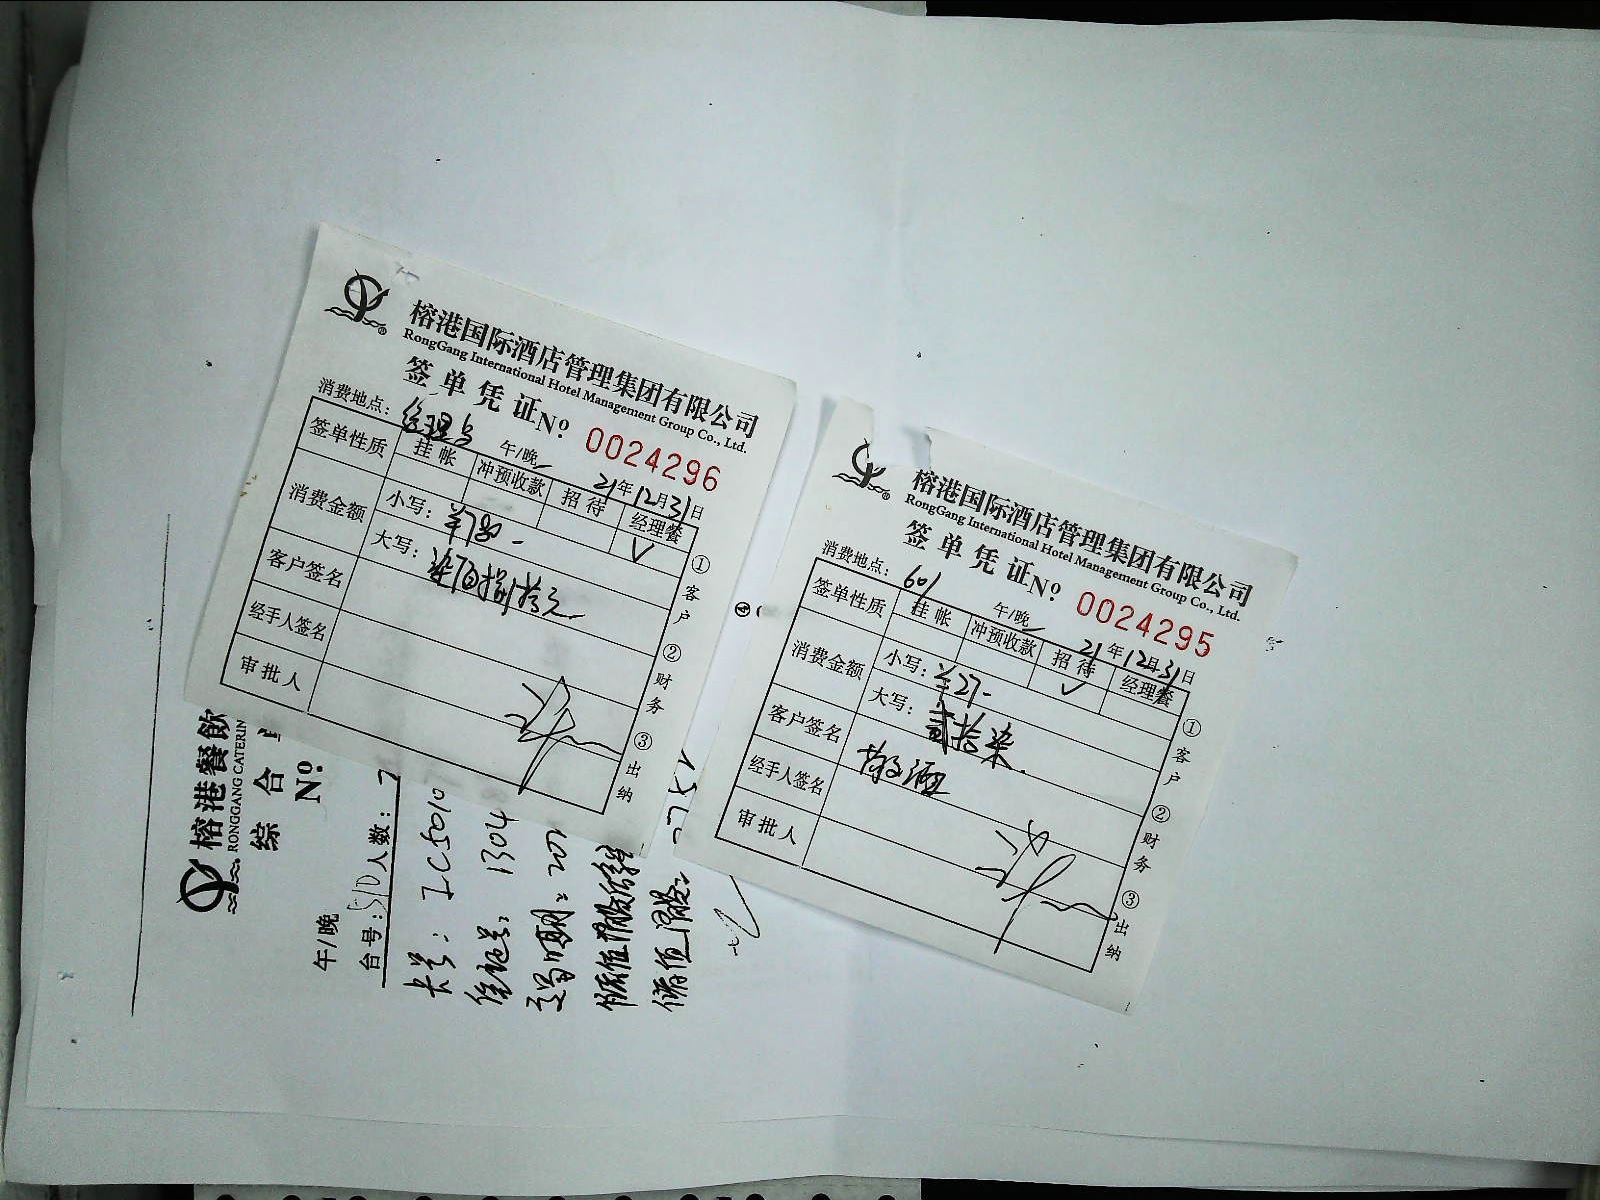 榕港国际酒店管理集团有限公司
RongGang International Hotel Management Group Co., Ltd.
签单凭证 Nº 0024296
消费地点：经理 午/晚 21年12月31日
签单性质 挂帐 冲预收款 招待 经理餐 ✓
消费金额 小写：¥780-
大写：柒佰捌拾元
客户签名
经手人签名
审批人
①客户 ②财务 ③出纳
榕港国际酒店管理集团有限公司
RongGang International Hotel Management Group Co., Ltd.
签单凭证 Nº 0024295
消费地点：601 午/晚 21年12月31日
签单性质 挂帐 冲预收款 招待 ✓ 经理餐
消费金额 小写：¥27-
大写：贰拾柒
客户签名 敬酒
经手人签名
审批人
①客户 ②财务 ③出纳
榕港餐飲
RONGGANG CATERIN
综合
Nº
午/晚
台号：510 人数：7
卡号：IC5010
1304
202
储值
④